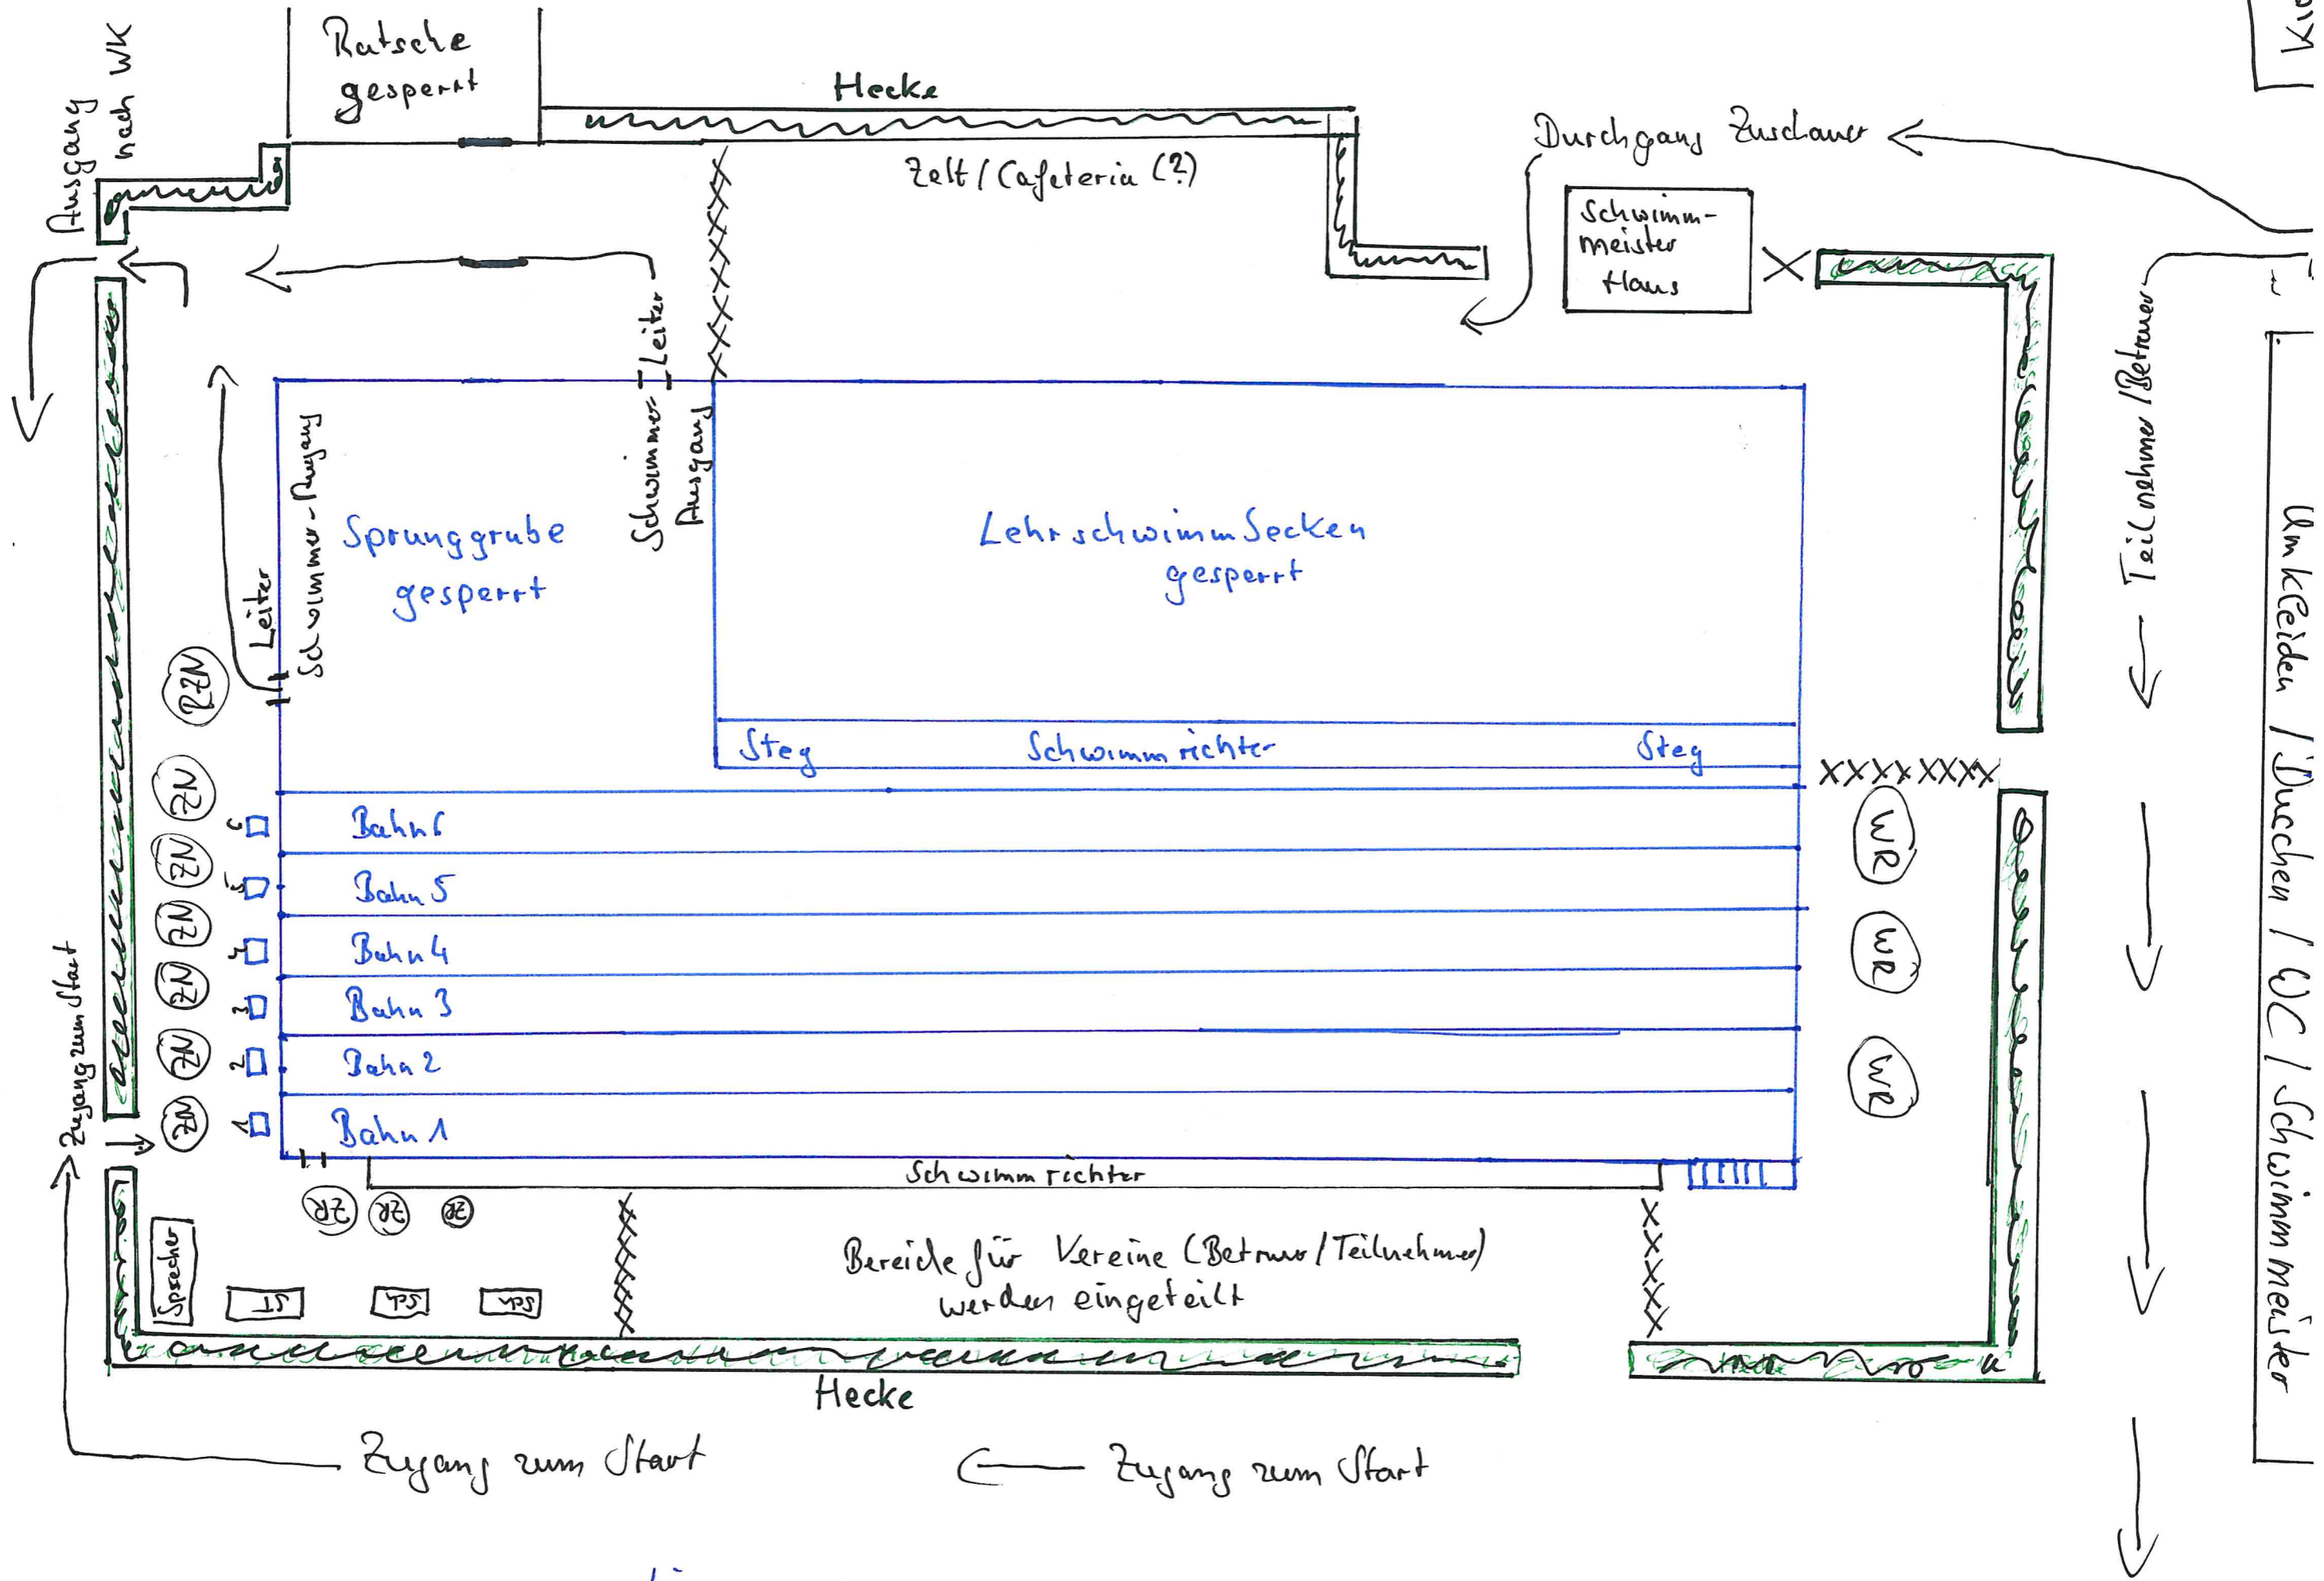 Ausgang
nach WK
Rutsche
gesperrt
Hecke
Zelt / Cafeteria (?)
Durchgang Zuschauer
Schwimm-
meister
Haus
Teilnehmer / Betreuer
Umkleiden / Duschen / WC / Schwimmmeister
Leiter
Schwimmer-
Ausgang
Leiter
Schwimmer-Ausgang
Sprunggrube
gesperrt
Lehrschwimmbecken
gesperrt
Steg
Schwimmrichter
Steg
RZN
ZN
ZN
ZN
ZN
ZN
ZN
6
5
4
3
2
1
Bahn 6
Bahn 5
Bahn 4
Bahn 3
Bahn 2
Bahn 1
WR
WR
WR
Zugang zum Start
Schwimmrichter
ZR
ZR
ZR
Sprecher
ST
Sch
Sch
Bereiche für Vereine (Betreuer/Teilnehmer)
werden eingeteilt
Hecke
Zugang zum Start
Zugang zum Start